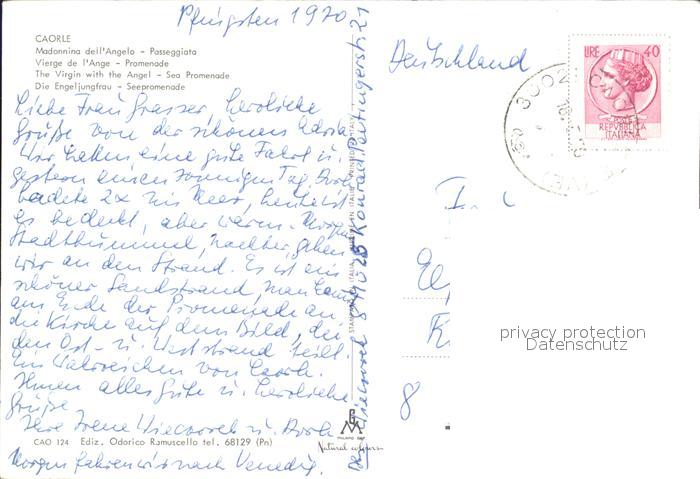 Pfingsten 1970
CAORLE
Madonnina dell'Angelo - Passeggiata
Vierge de l'Ange - Promenade
The Virgin with the Angel - Sea Promenade
Die Engeljungfrau - Seepromenade
Liebe Frau Grasser, herzliche
Grüße von der schönen Adria
Wir hatten eine gute Fahrt u.
gestern einen sonnigen Tag,
badete 2x im Meer, heute ist
es bedeckt, aber warm. Morgen
Stadtbummel, nachher gehen
wir an den Strand. Es ist ein
schöner Sandstrand, man kann
am Ende der Promenade an
die Kirche auf dem Bild, der
den Ost- u. Weststrand teilt.
Ein Wahrzeichen von Caorle.
Ihnen alles Gute u. herzliche
Grüße
Ihre Irene Wieczorek u.
CAO 124 Ediz. Odorico Ramuscello tel. 68129 (Pn)
Morgen fahren wir nach Venedig.
Wieczorek
Natural colours
Deutschland
LIRE 40
REPVBBLICA
ITALIANA
privacy protection
Datenschutz
8